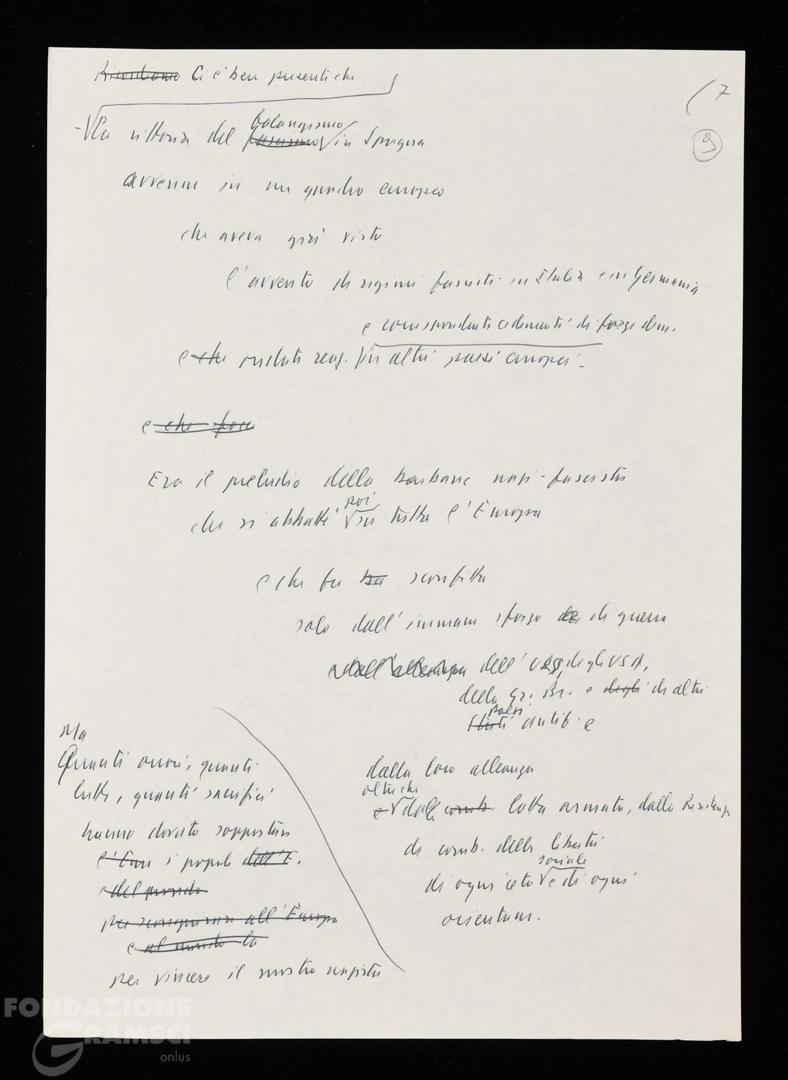 Ricordiamo Ci è ben presente che
7
9
- La vittoria del fascismo falangismo in Spagna
avvenne in un quadro europeo
che aveva già visto
l'avvento di regimi fascisti in Italia e in Germania
e corrispondenti cedimenti di forze dem.
e che ondate reaz. in altri paesi europei.
e che
Era il preludio della barbarie nazi-fascista
che si abbatté poi su tutta l'Europa
e che fu sconfitta
solo dall'immane sforzo di guerra
dall'alleanza dell'URSS, degli USA,
della Gr. Br. e degli di altri
Stati paesi antih. e
dalla loro alleanza
oltre che
e dalla lotta armata, dalla Resistenza
di comb. della libertà
di ogni ceto sociale e di ogni
orientam.
Ma
Quanti orrori, quanti
lutti, quanti sacrifici
hanno dovuto sopportare
l'Eur i popoli dell'E.
del mondo
per all'Europa
e al mondo la
per vincere il mostro nazista
FONDAZIONE
GRAMSCI
onlus